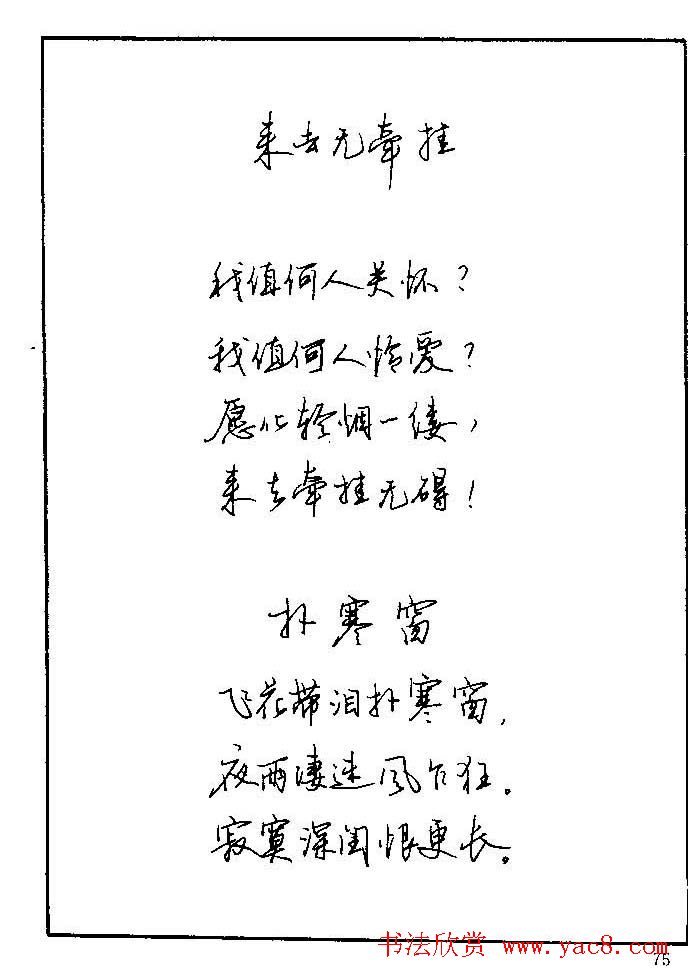 来去无牵挂
我值何人关怀?
我值何人怜爱?
愿化轻烟一缕,
来去牵挂无碍!
扑寒窗
飞花带泪扑寒窗,
夜雨凄迷风乍狂。
寂寞深闺恨更长。
书法欣赏 www.yac8.com
75